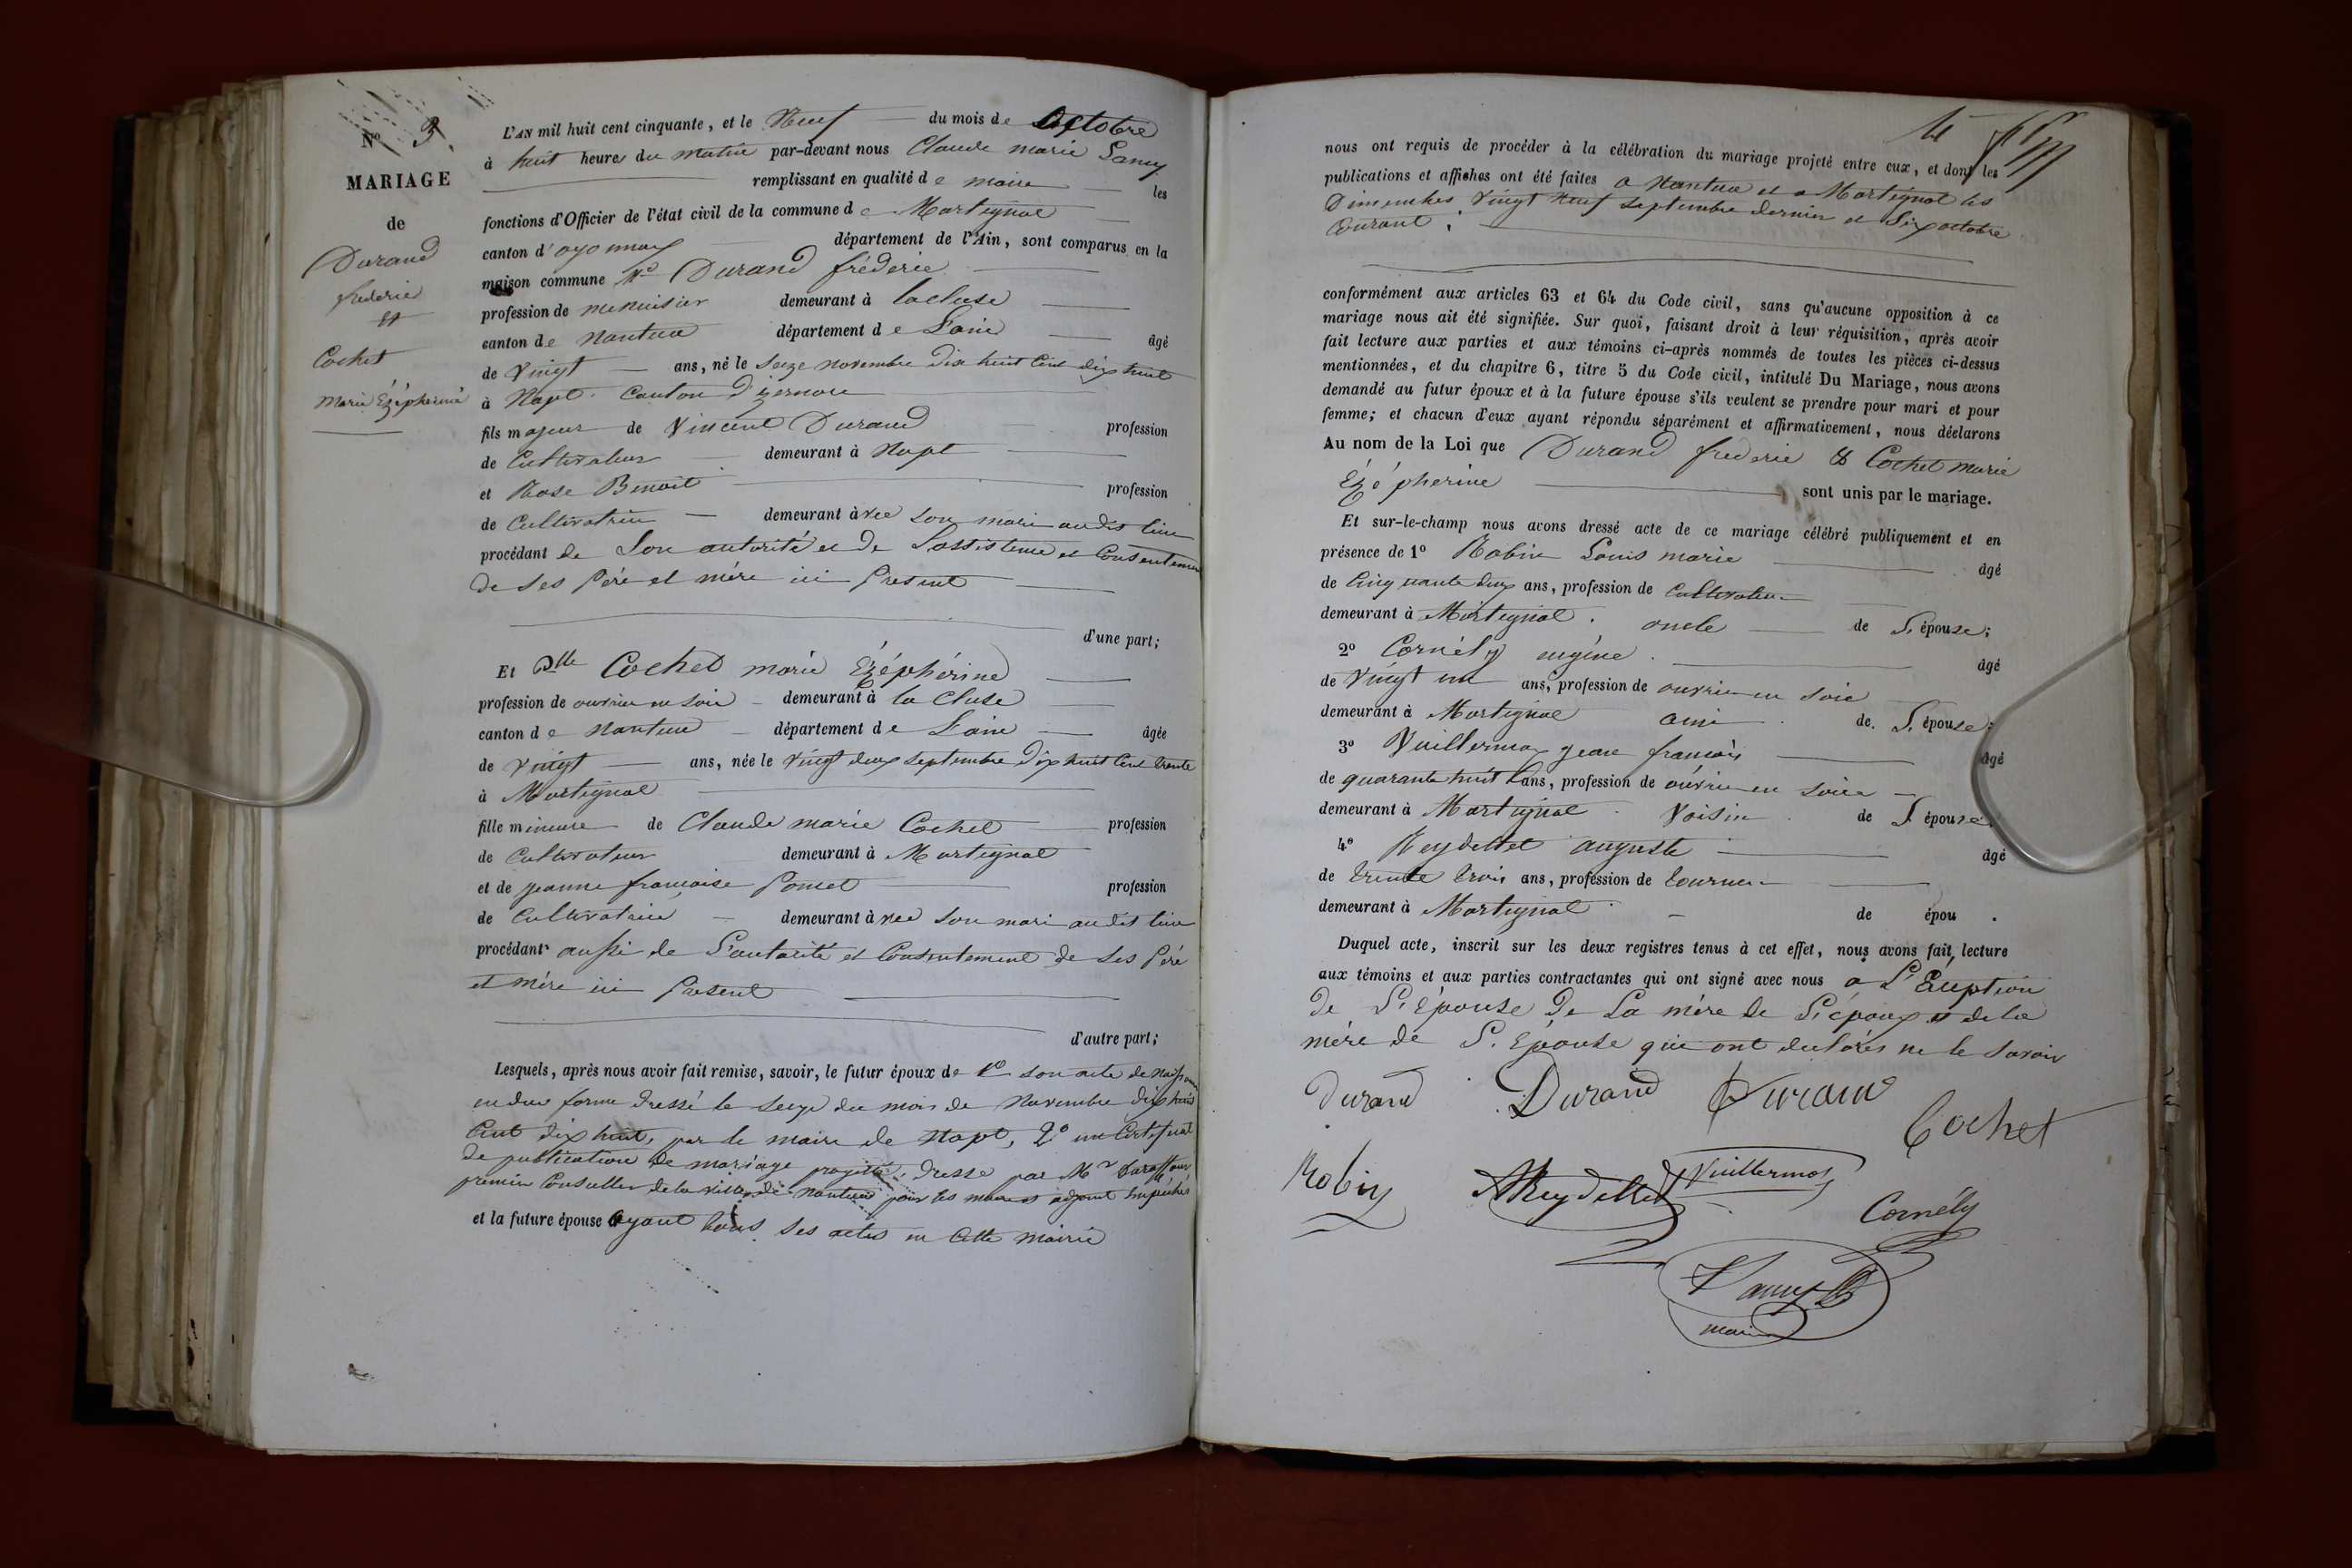 N° 3.
MARIAGE
de
Durand
frederic
et
Cochet
Marie Ezépherine
L'AN mil huit cent cinquante, et le Neuf du mois de Octobre
à huit heures du matin par-devant nous Claude marie Lamy
remplissant en qualité de maire les
fonctions d'Officier de l'état civil de la commune de Martignat
canton d'oyonnax département de l'Ain, sont comparus en la
maison commune Durand fréderic
profession de menuisier demeurant à lacluse
canton de Nantua département de L'ain âgé
de Vingt ans, né le Seize novembre dix huit Cent dix huit
à Napt Canton d'izernore
fils majeur de Vincent Durand profession
de Cultivateur demeurant à Napt
et Rose Benoit profession
de Cultivatrice demeurant àvec son mari audit lieu
procédant de Son autorité et de L'assistence et Consentement
de ses Père et mère ici Present
d'une part;
Et Dlle Cochet marie Ezéphérine
profession de ouvrière en soie demeurant à la Cluse
canton de Nantua département de L'ain âgée
de Vingt ans, née le Vingt deux septembre Dix huit Cent trente
à Martignat
fille mineure de Claude marie Cochet profession
de Cultivateur demeurant à Martignat
et de jeanne françoise Poncet profession
de Cultivatrice demeurant àvec son mari audit lieu
procédant aussi de L'autorité et Consentement de ses Père
et mère ici Present
d'autre part;
Lesquels, après nous avoir fait remise, savoir, le futur époux de 1° son acte de Naissance
en due forme dressé le Seize du mois de Novembre dix huit
Cent dix huit, par le maire de Napt, 2° un Certificat
de publication de mariage projetté dressé par Mr
premier Conseiller de la ville de Nantua pour les maire et adjoint empéchés
et la future épouse ayant tous ses actes en Cette mairie
nous ont requis de procéder à la célébration du mariage projeté entre eux, et dont les
publications et affiches ont été faites a Nantua et a Martignat les
Dimenches Vingt Neuf septembre dernier et Six octobre
Courant.
conformément aux articles 63 et 64 du Code civil, sans qu'aucune opposition à ce
mariage nous ait été signifiée. Sur quoi, faisant droit à leur réquisition, après avoir
fait lecture aux parties et aux témoins ci-après nommés de toutes les pièces ci-dessus
mentionnées, et du chapitre 6, titre 5 du Code civil, intitulé Du Mariage, nous avons
demandé au futur époux et à la future épouse s'ils veulent se prendre pour mari et pour
femme; et chacun d'eux ayant répondu séparément et affirmativement, nous déclarons
Au nom de la Loi que Durand frederic & Cochet marie
Ezépherine sont unis par le mariage.
Et sur-le-champ nous avons dressé acte de ce mariage célébré publiquement et en
présence de 1° Robin Louis marie âgé
de Cinquante deux ans, profession de Cultivateur
demeurant à Martignat. oncle de L'épouse;
2° Cornély eugéne âgé
de Vingt un ans, profession de ouvrier en soie
demeurant à Martignat ami de L'épouse;
3° Vuillermoz jean françois âgé
de quarante huit ans, profession de ouvrier en soie
demeurant à Martignat Voisin de L'épouse.
4° Reydellet auguste âgé
de trente trois ans, profession de tourneur
demeurant à Martignat de épou .
Duquel acte, inscrit sur les deux registres tenus à cet effet, nous avons fait lecture
aux témoins et aux parties contractantes qui ont signé avec nous a L'Exeption
de L'Epouse De La mère de L'époux et de la
mère de L'Epouse qui ont declarés ne le savoir
Durand Durand Durand Cochet
Robin AReydellet Vuillermoz Cornély
Lamy
maire